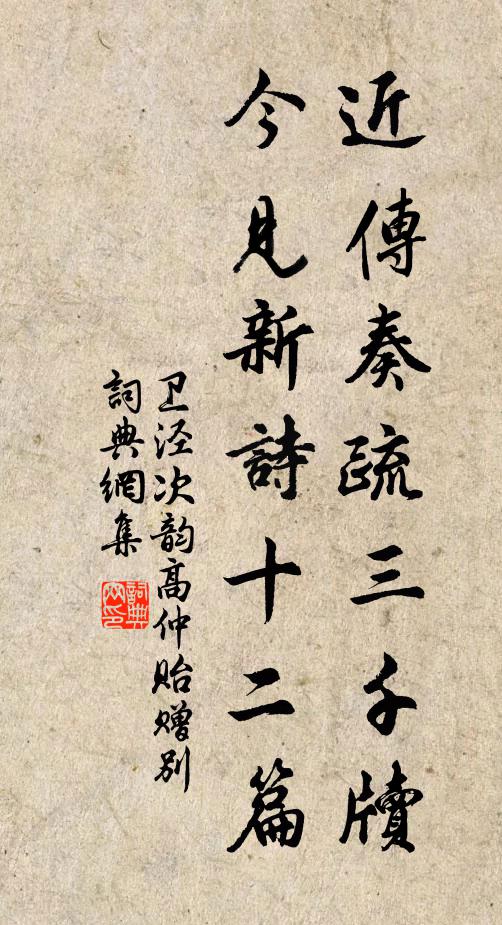 近傳奏疏三千牘
今見新詩十二篇
卫泾次韵高仲贻赠别
詞典網集
詞典网印